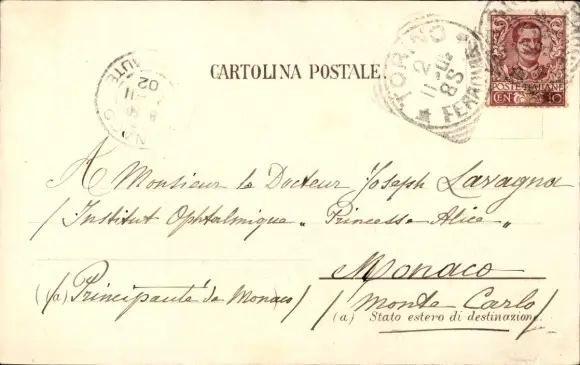 CARTOLINA POSTALE.
TORINO
FERROVIA
11-2
8S
POSTE ITALIANE
CEN 10
MONACO
02
A Monsieur le Docteur Joseph Lavagna
/Institut Ophtalmique „ Princesse Alice „
Monaco
(a) /Principauté de Monaco/ /Monte Carlo/
(a) Stato estero di destinazione.